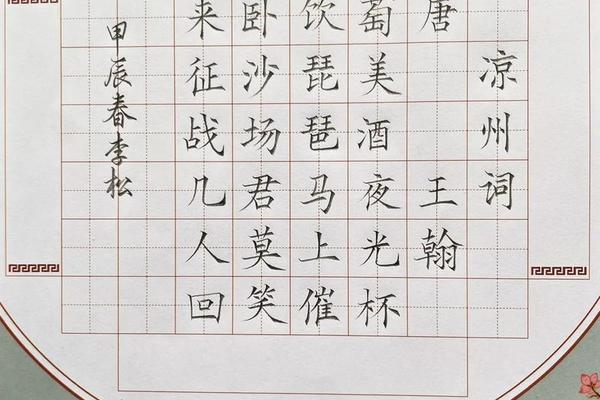 凉州词
唐王翰
萄美酒夜光杯
饮琵琶马上催
卧沙场君莫笑
来征战几人回
甲辰春李松